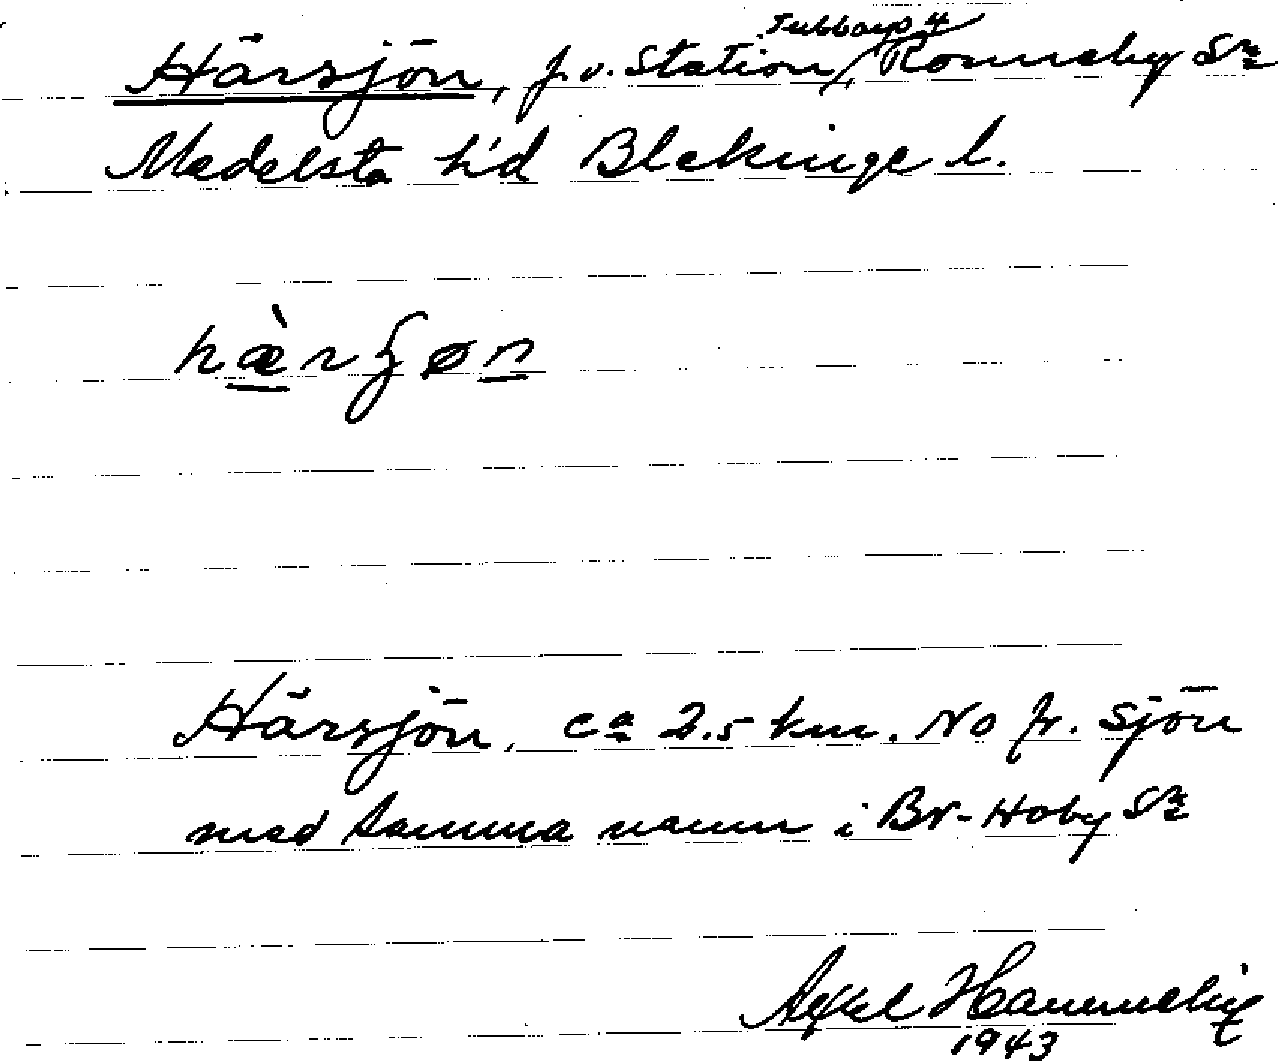 Tubbarp 4
Härsjön, f.v. Station, Ronneby Sn
Medelsta h'd Blekinge l.
hæ̀rʃøn
Härsjön, ca 2.5 km. NO fr. sjön
med samma namn i Br-Hoby Sn
Axel
1943